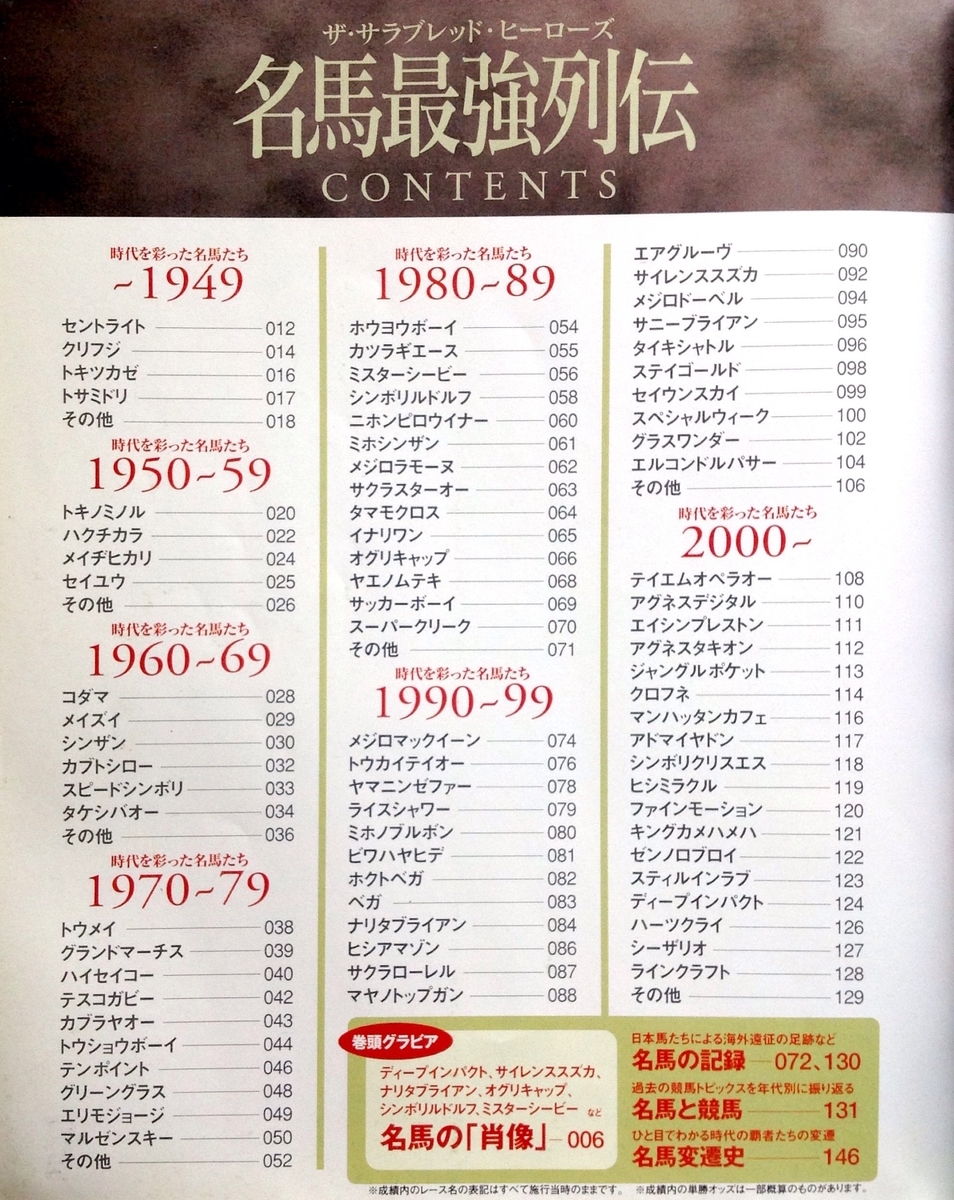 ザ・サラブレッド・ヒーローズ
名馬最強列伝
CONTENTS
時代を彩った名馬たち
~1949
セントライト 012
クリフジ 014
トキツカゼ 016
トサミドリ 017
その他 018
時代を彩った名馬たち
1950~59
トキノミノル 020
ハクチカラ 022
メイヂヒカリ 024
セイユウ 025
その他 026
時代を彩った名馬たち
1960~69
コダマ 028
メイズイ 029
シンザン 030
カブトシロー 032
スピードシンボリ 033
タケシバオー 034
その他 036
時代を彩った名馬たち
1970~79
トウメイ 038
グランドマーチス 039
ハイセイコー 040
テスコガビー 042
カブラヤオー 043
トウショウボーイ 044
テンポイント 046
グリーングラス 048
エリモジョージ 049
マルゼンスキー 050
その他 052
時代を彩った名馬たち
1980~89
ホウヨウボーイ 054
カツラギエース 055
ミスターシービー 056
シンボリルドルフ 058
ニホンピロウイナー 060
ミホシンザン 061
メジロラモーヌ 062
サクラスターオー 063
タマモクロス 064
イナリワン 065
オグリキャップ 066
ヤエノムテキ 068
サッカーボーイ 069
スーパークリーク 070
その他 071
時代を彩った名馬たち
1990~99
メジロマックイーン 074
トウカイテイオー 076
ヤマニンゼファー 078
ライスシャワー 079
ミホノブルボン 080
ビワハヤヒデ 081
ホクトベガ 082
ベガ 083
ナリタブライアン 084
ヒシアマゾン 086
サクラローレル 087
マヤノトップガン 088
エアグルーヴ 090
サイレンススズカ 092
メジロドーベル 094
サニーブライアン 095
タイキシャトル 096
ステイゴールド 098
セイウンスカイ 099
スペシャルウィーク 100
グラスワンダー 102
エルコンドルパサー 104
その他 106
時代を彩った名馬たち
2000~
テイエムオペラオー 108
アグネスデジタル 110
エイシンプレストン 111
アグネスタキオン 112
ジャングルポケット 113
クロフネ 114
マンハッタンカフェ 116
アドマイヤドン 117
シンボリクリスエス 118
ヒシミラクル 119
ファインモーション 120
キングカメハメハ 121
ゼンノロブロイ 122
スティルインラブ 123
ディープインパクト 124
ハーツクライ 126
シーザリオ 127
ラインクラフト 128
その他 129
巻頭グラビア
ディープインパクト、サイレンススズカ、
ナリタブライアン、オグリキャップ、
シンボリルドルフ、ミスターシービー など
名馬の「肖像」 006
日本馬たちによる海外遠征の足跡など
名馬の記録 072、130
過去の競馬トピックスを年代別に振り返る
名馬と競馬 131
ひと目でわかる時代の覇者たちの変遷
名馬変遷史 146
※成績内のレース名の表記はすべて施行当時のままです。 ※成績内の単勝オッズは一部概算のものがあります。